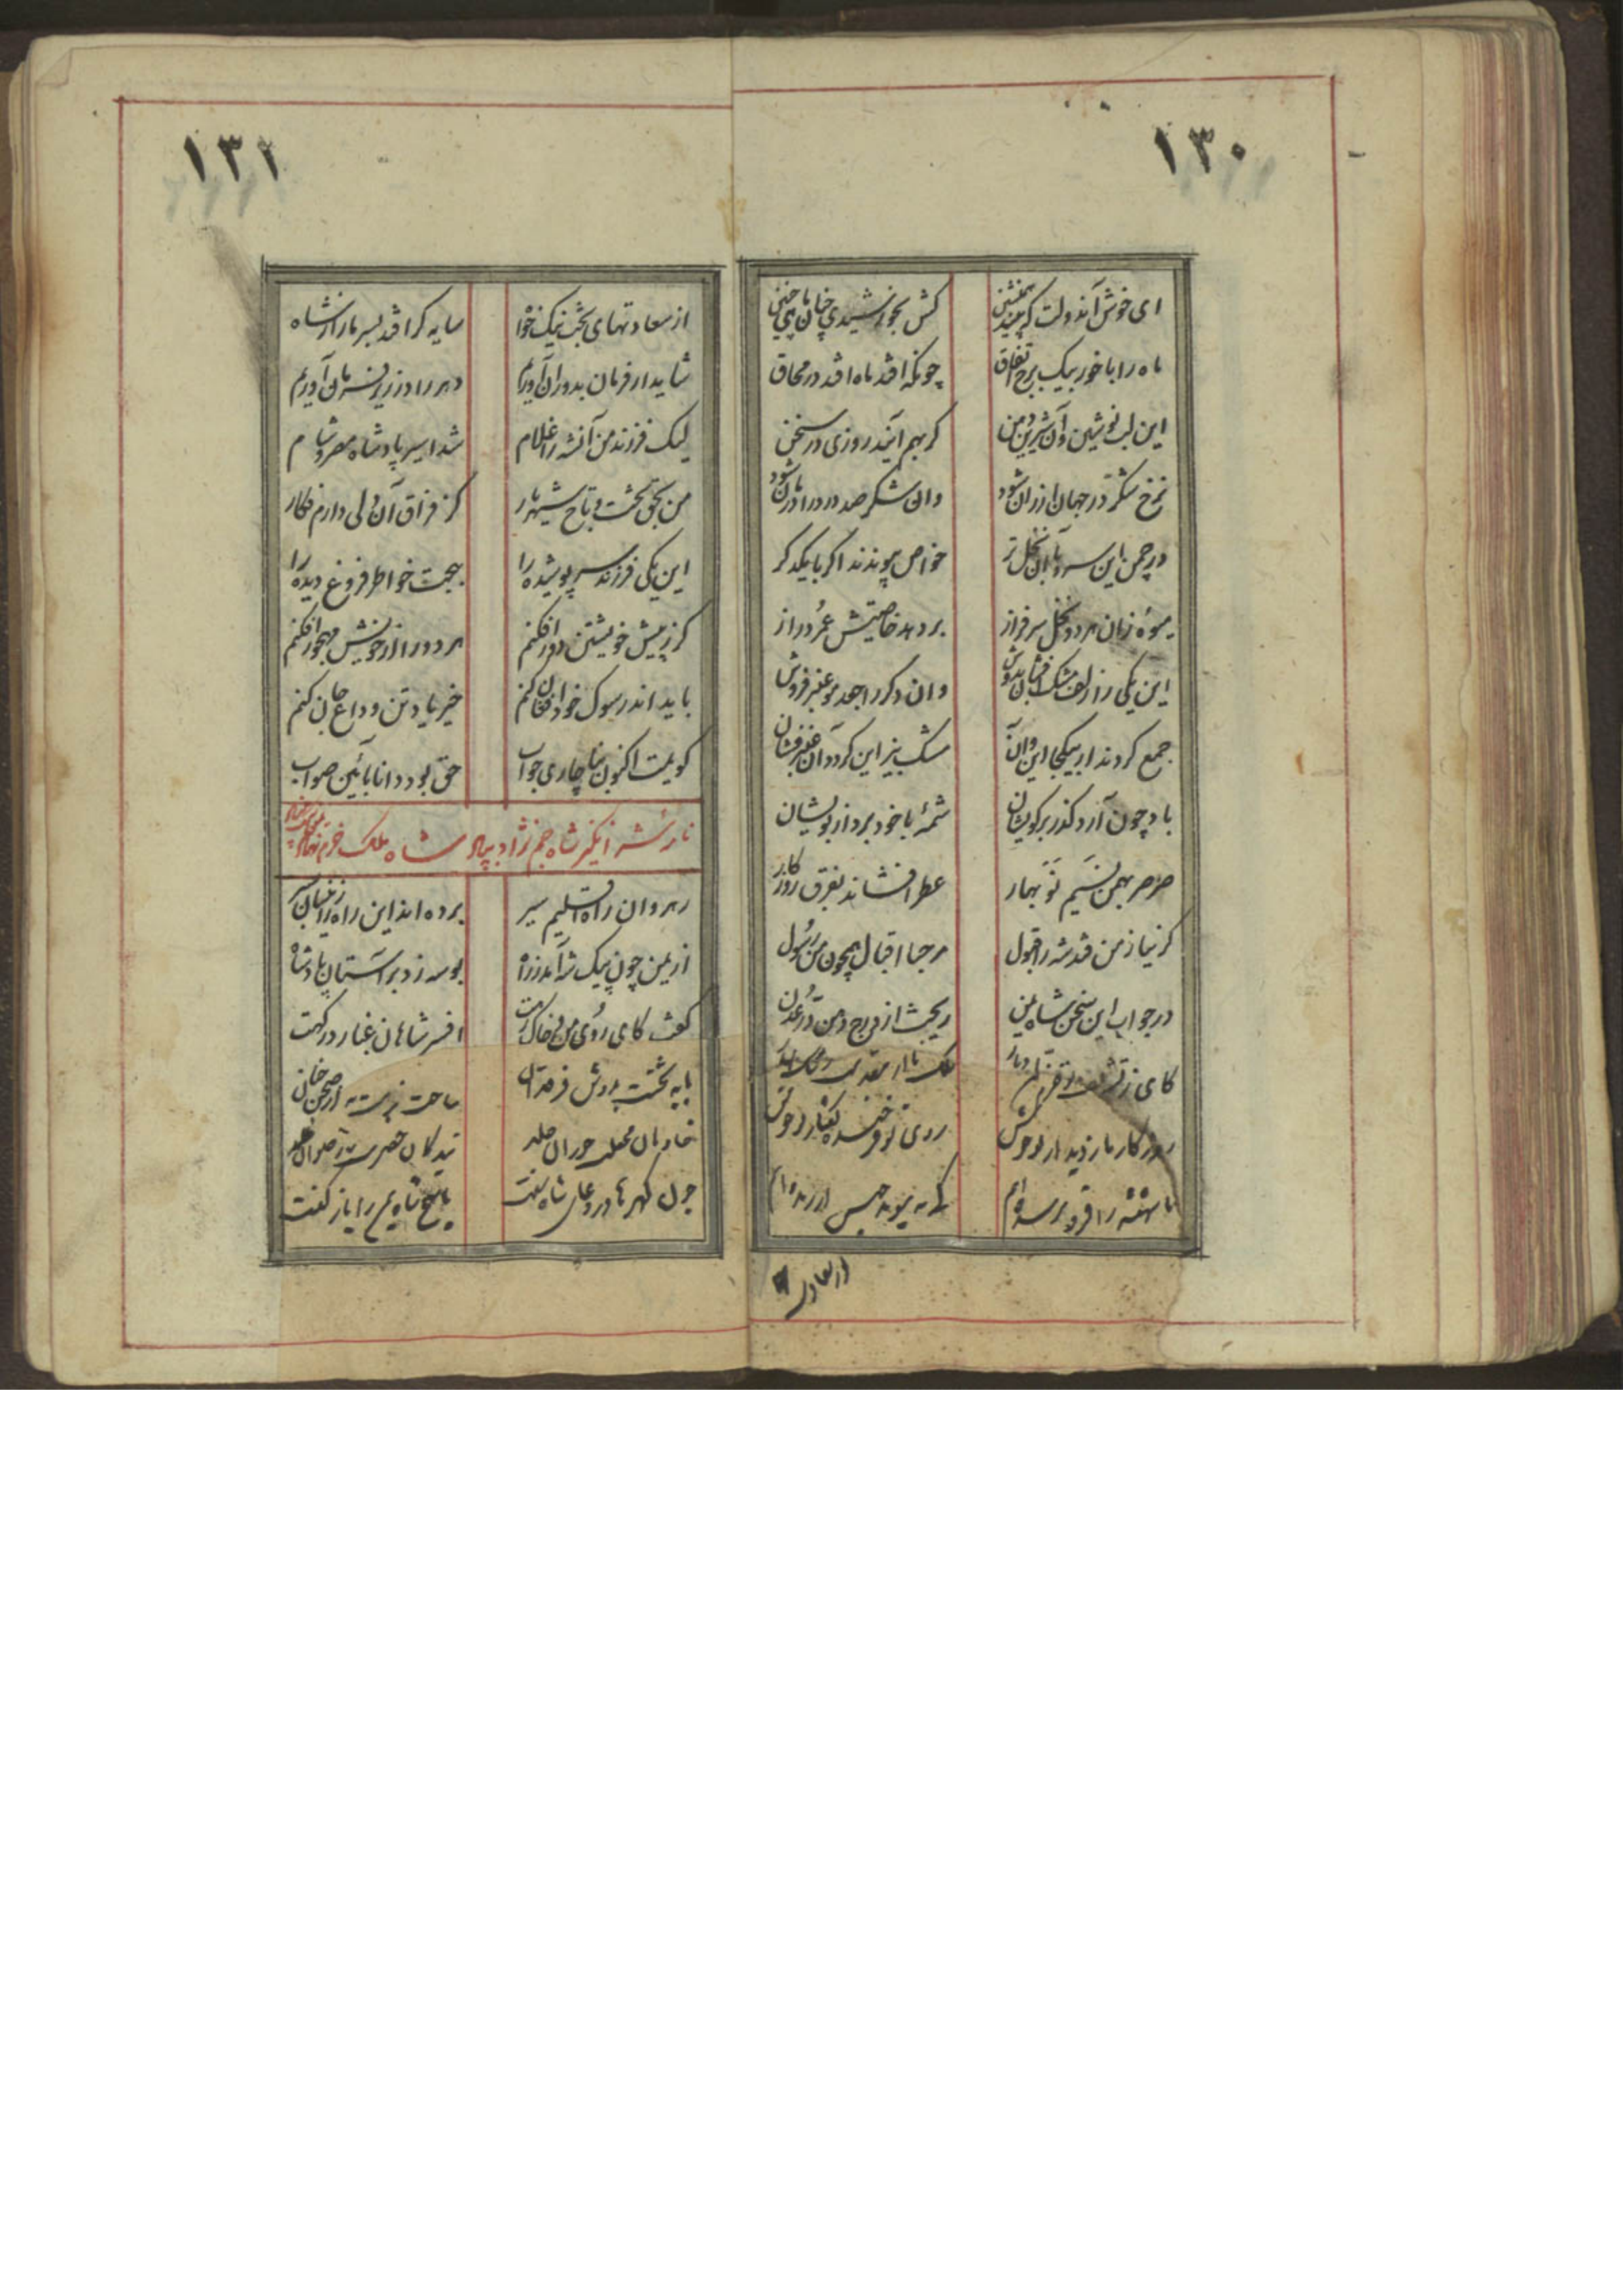 ۱۳۰
ای خوش آندولت که بیند همنشین کش بخورشیدی چنان ماهی چنین
ماه را با خور بیک برج اتفاق چونکه افتد ماه افتد در محاق
این لب نوشین و آن شیرین من کر بهم آیند روزی در سخن
نرخ شکر در جهان ارزان شود وان شکر صد درد را درمان شود
در چمن این سرو با آن نخل تر خواص پیوندند اکر با یکدکر
میوه زان هر دو نخل سرفراز بر دهد خاصیتش عمر دراز
این یکی را زلف مشک افشان بدوش وان دکر را جعد مو عنبر فروش
جمع کردند ار بیکجا این و آن مشک بیز این کردد آن عنبر فشان
باد چون آرد کذر بر کویشان شمهٔ با خود برد از بویشان
صرصر بهمن نسیم نوبهار عطر افشاند بفرق روزکار
کر نیاز من فتد شه را قبول مرحبا اقبال همچون من رسول
در جواب این سخن شاه یمن ریخت از درج دهن در عدن
کای ز
روزکار ما ز دیدار تو خوش روی تو فرخنده کفتار تو خوش
را
از سعادت
۱۳۱
از سعادتهای بخت نیکخواه سایه کر افتد بسر ما را ز شاه
شاید ار فرمان بدوران آوریم دهر را در زیر فرمان آوریم
لیک فرزند من آنشه را غلام شد اسیر پادشاه مصر و شام
من بحق تخت و تاج شهریار کز فراق آن دلی دارم فکار
این یکی فرزند سر پوشیده را بهجت خواطر فروغ دیده را
کر ز پیش خویشتن دور افکنم هر دو را از خویش مهجور افکنم
باید اندر سوک خود افغان کنم خیرباد تن وداع جان کنم
کویمت اکنون بناچاری جواب حق بود دانا بآئین صواب
شاه جم نژاد شاه ملک
رهروان راه اقلیم سیر برده اند این راه را زینسان بسر
از یمن چون پیک شه آمد ز راه بوسه زد بر آستان پادشاه
کفت کای روی من و خاک رهت افسر شاهان غبار درکهت
پایه تختت بدوش فرقدان ساحت
خادمان محفلت حوران خلد بندکان حضرتت
چون کهرها در دعای شاه سفت پاسخ شاه یمن را باز کفت